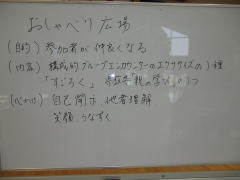 おしゃべり広場
(目的) 参加者が仲良くなる
(内容) 構成的グループエンカウンターのエクササイズの1種
「すごろく」 「親の学び」の1つ
(心がけ) 自己開示 他者理解
笑顔 うなずく